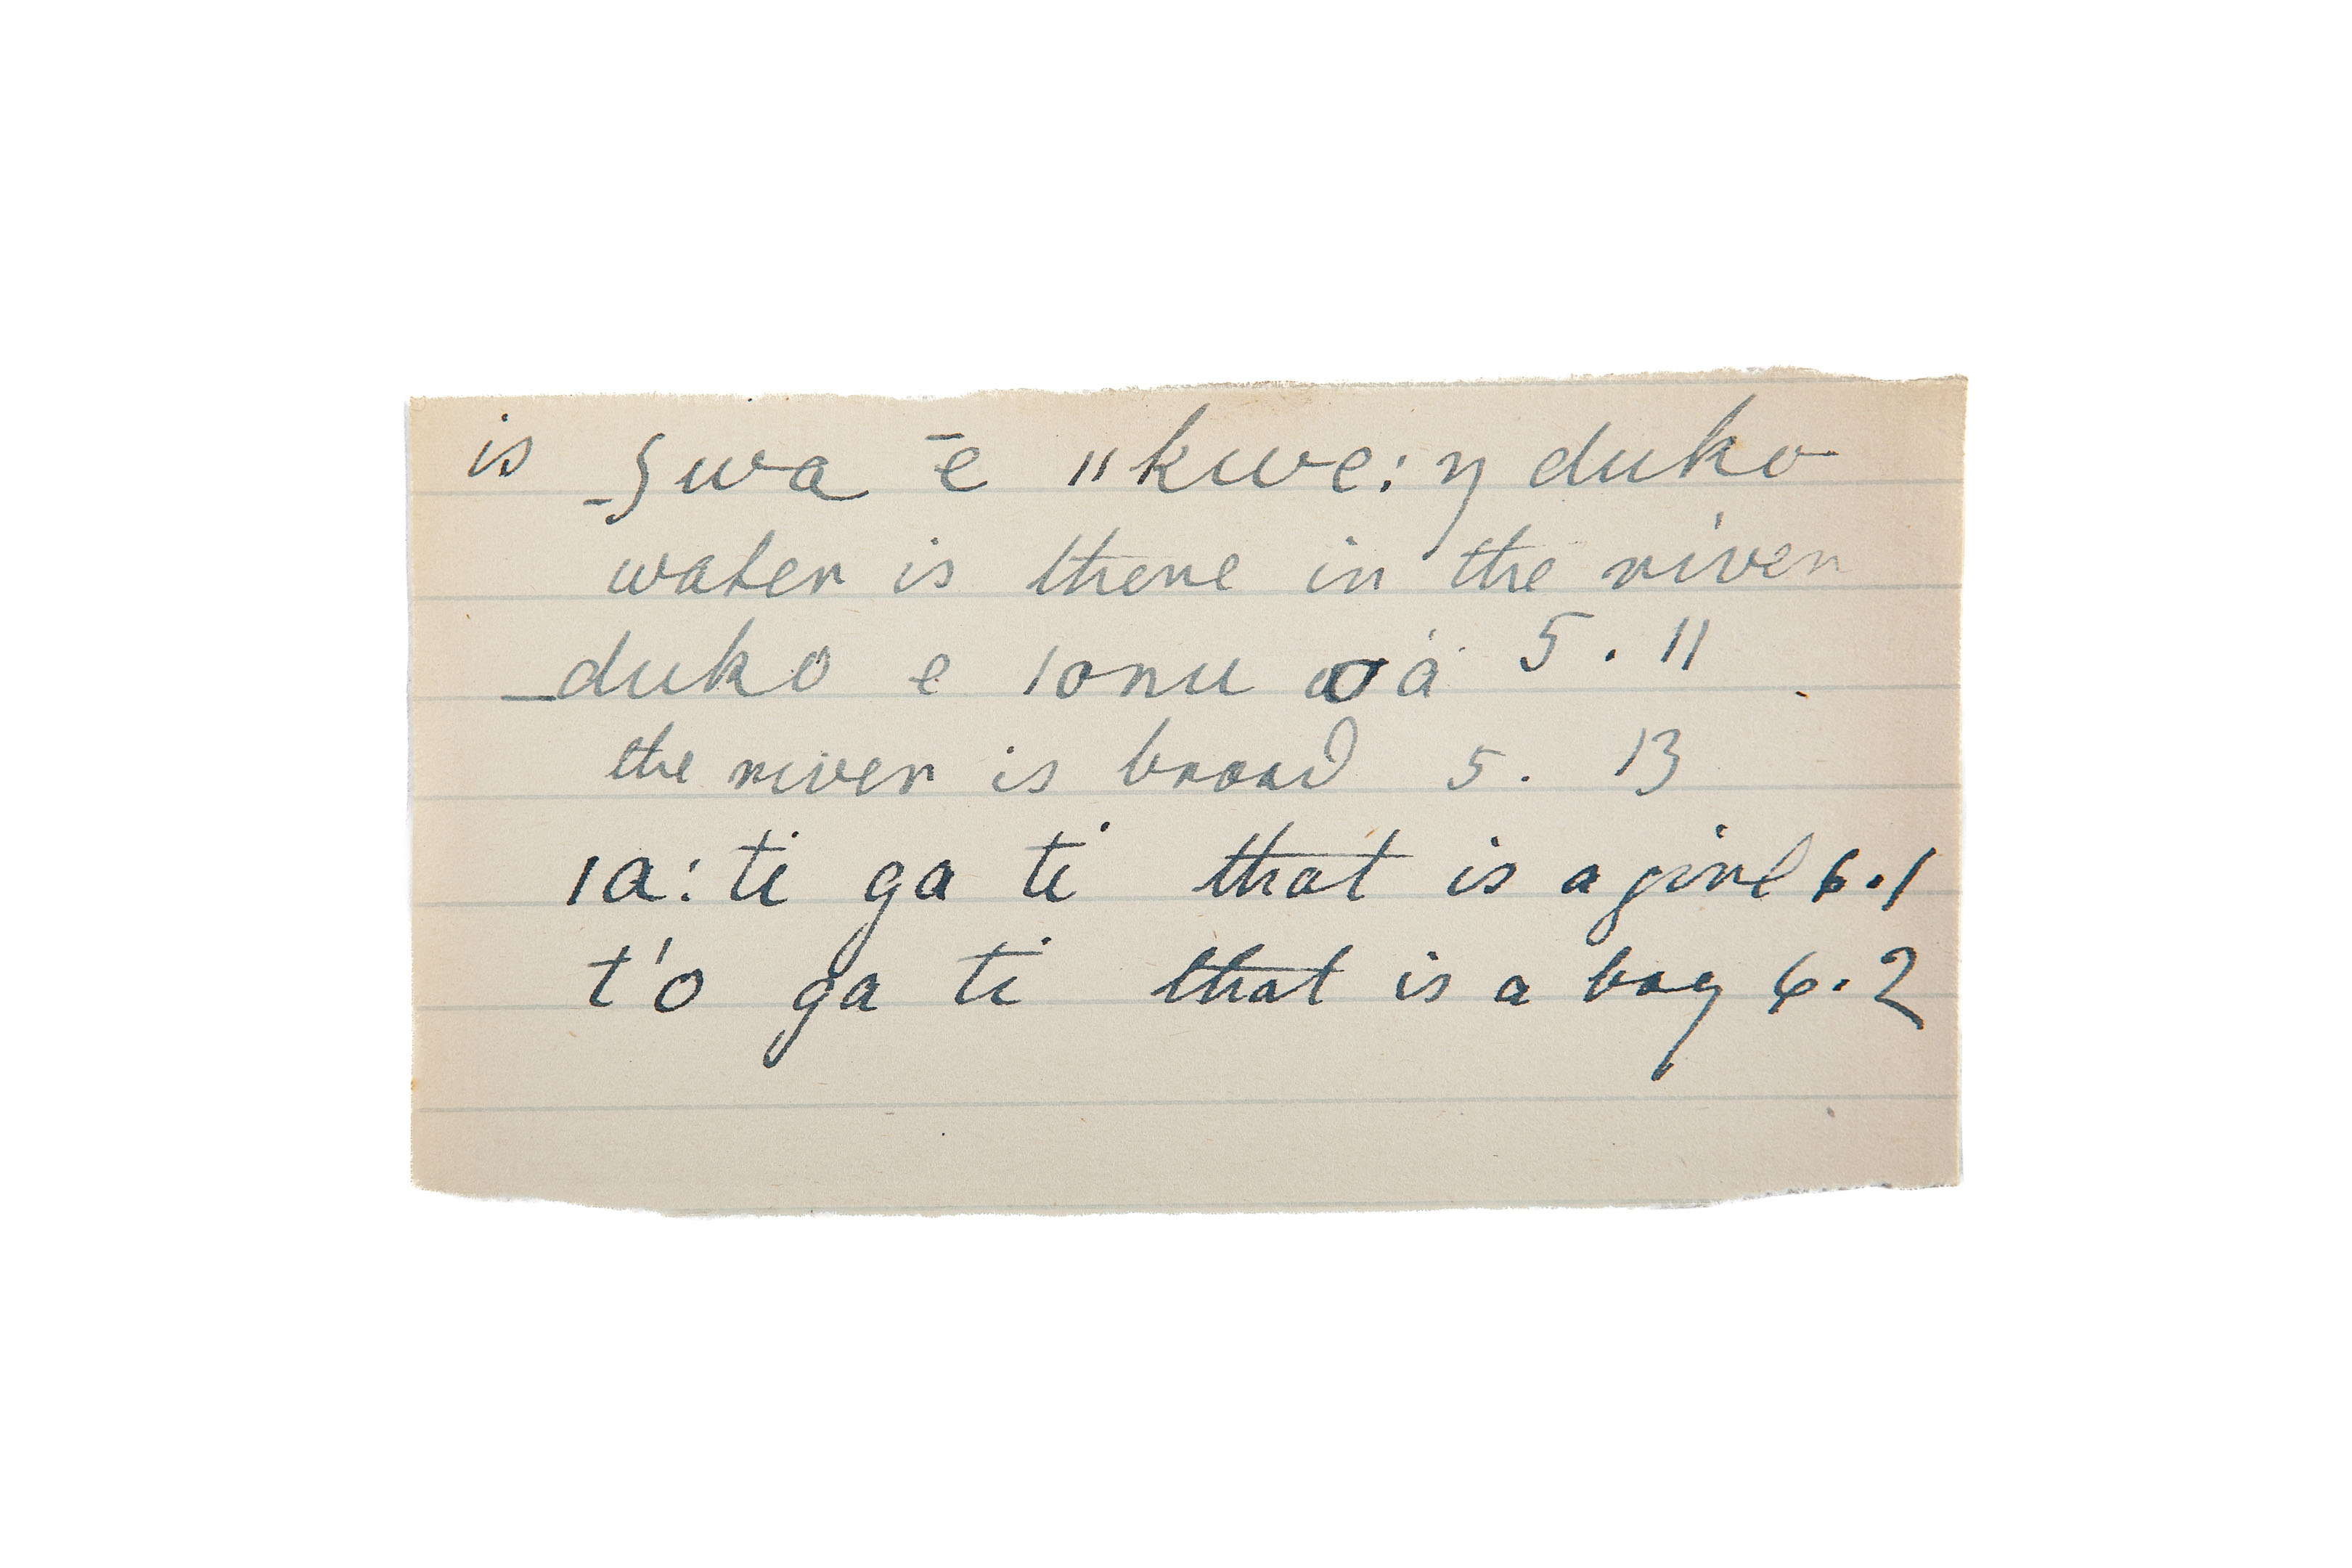 is _ʃwa ē ǁkwe:ŋ duko
water is there in the river
_duko e ǀonu a á 5.11
the river is broad 5. 13
ǀa: ti ga ti that is a girl 6.1
t'o ga ti that is a bag 6.2